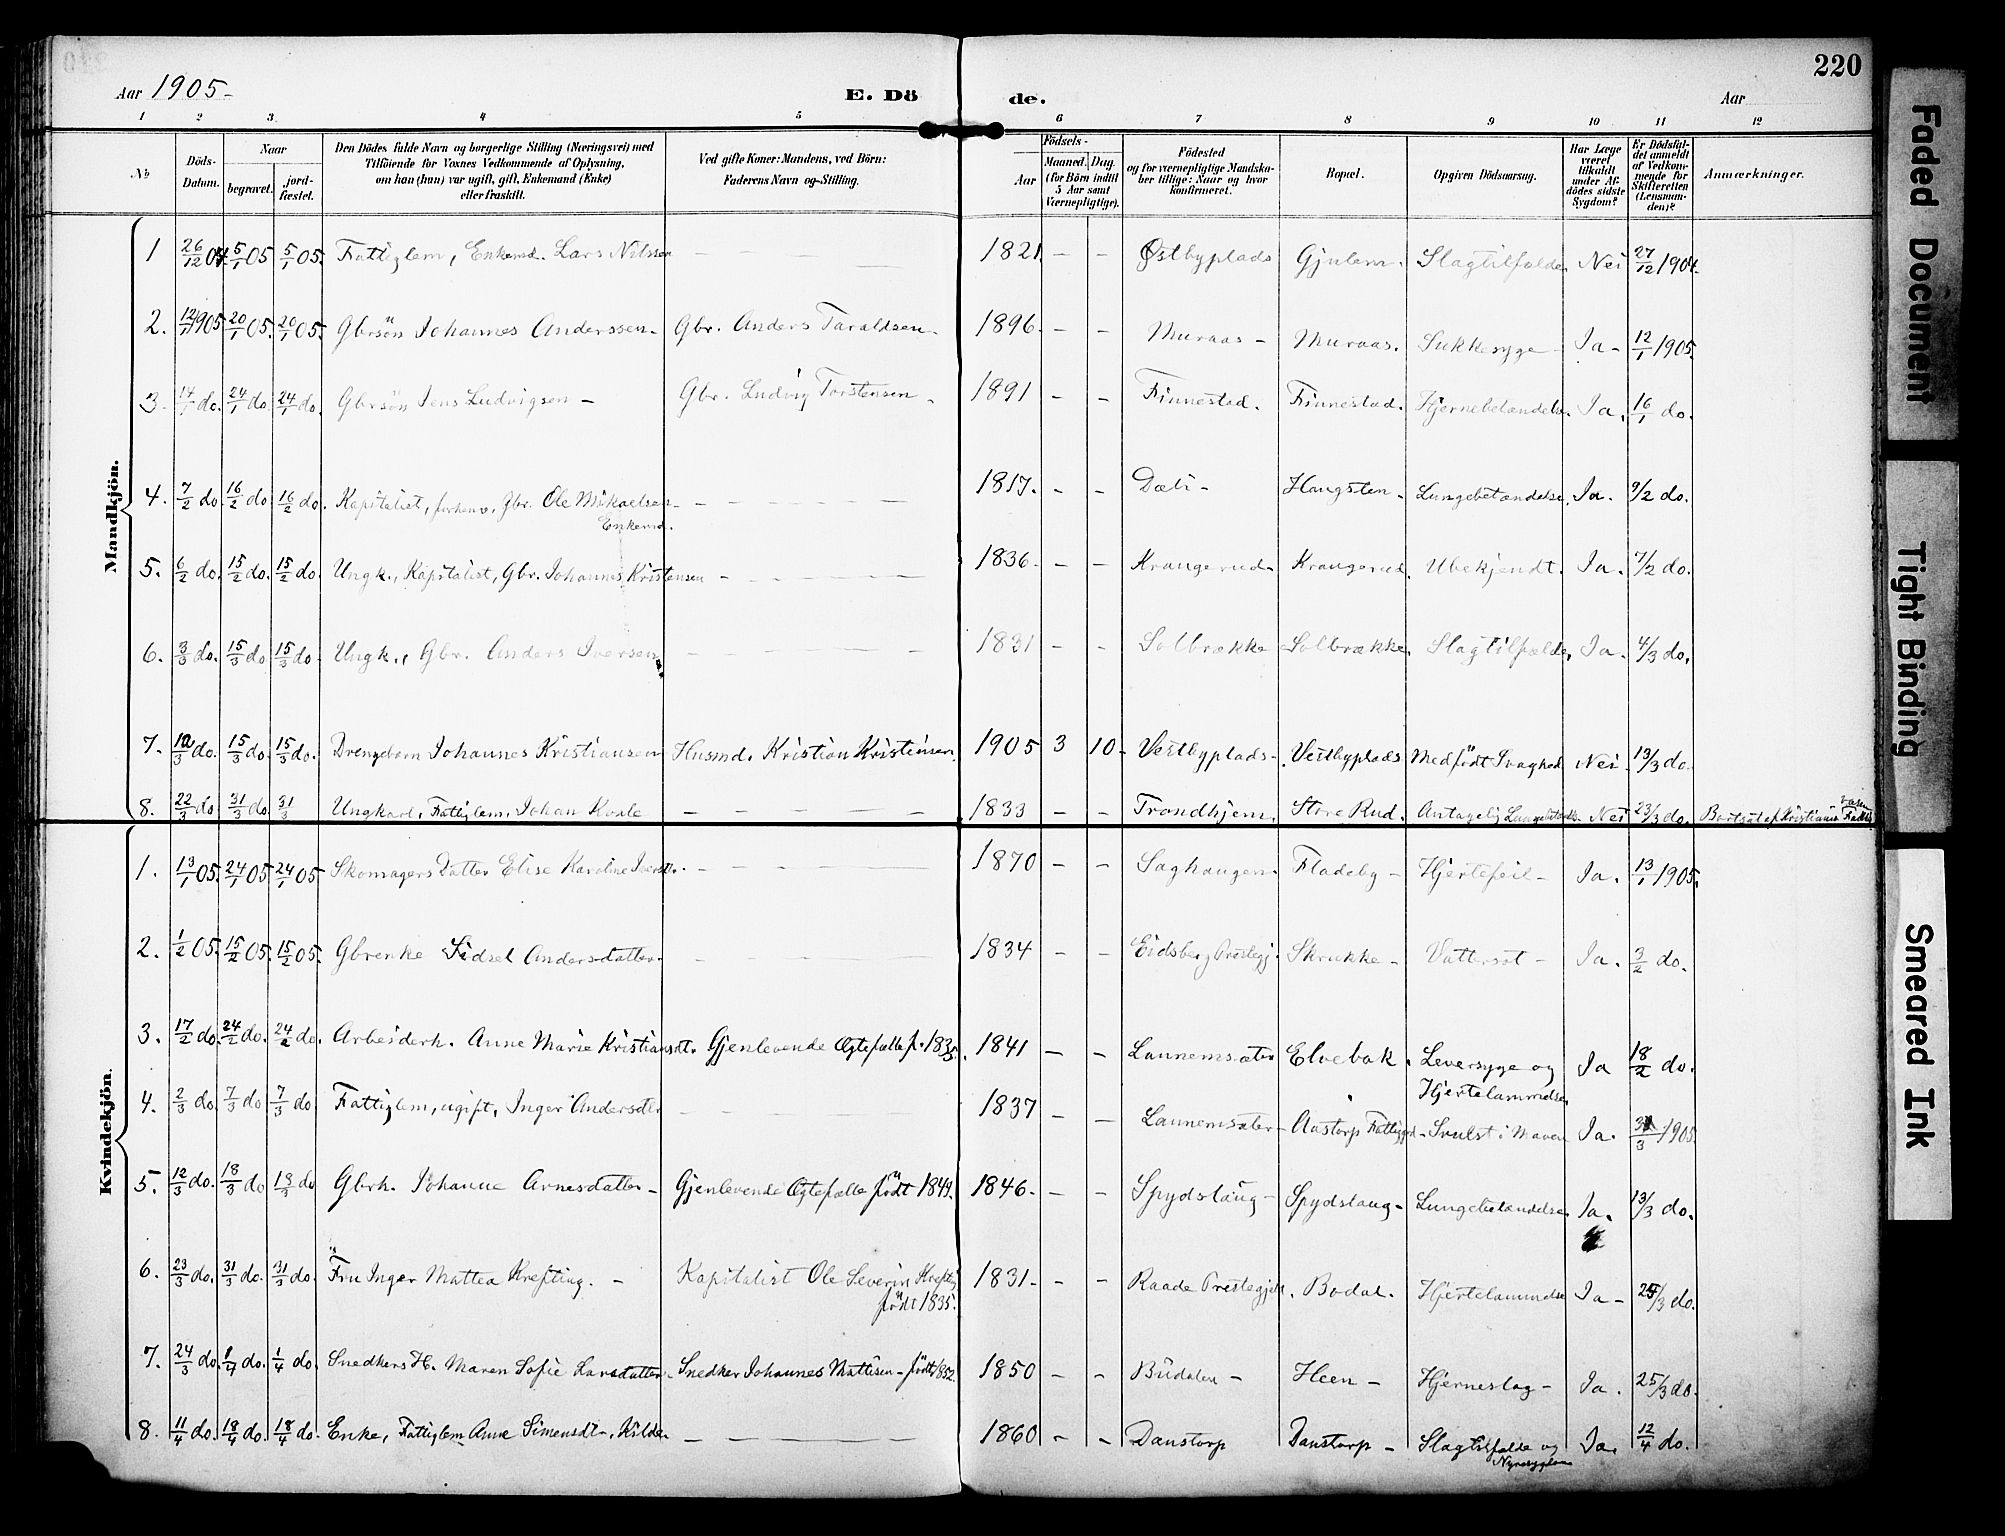 220
Aar 1905-
E. Dö de.
Aar
1 2 3 4 5 6 7 8 9 10 11 12
№
Döds-Datum.
Naar
begravet.
jord-fæstet.
Den Dödes fulde Navn og borgerlige Stilling (Næringsvei) med
Tilföiende for Voxnes Vedkommende af Oplysning,
om han (hun) var ugift, gift, Enkemand (Enke)
eller fraskilt.
Ved gifte Koner: Mandens, ved Börn:
Faderens Navn og Stilling.
Födsels-
Aar
Maaned. Dag.
(for Börn indtil
5 Aar samt
Værnepligtige).
Födested
og for værnepligtige Mandska-
ber tillige: Naar og hvor
konfirmeret.
Bopæl.
Opgiven Dödsaarsag.
Har Læge
været
tilkaldt
under Af-
dödes sidste
Sygdom?
Er Dödsfal-
det anmeldt
af Vedkom-
mende for
Skifteretten
(Lensman-
den)?
Anmærkninger.
Mandkjön.
1 26/12 04. 5/1 05 5/1 05. Fattiglem, Enkemd. Lars Nilssen — — 1821. – – Østbyplads Gjulem. Slagtilfælde Nei 27/12 1904.
2. 12/1 1905 20/1 05. 20/1 05. Gbrsön Johannes Anderssen – Gbr. Anders Taraldsen – 1896. – – Muraas – Muraas. Sukkersyge Ja – 12/1 1905.
3. 14/1 do. 24/1 do. 24/1 do. Gbrsön Jens Ludvigsen – Gbr. Ludvig Torstensen – 1891 – – Finnestad. Finnestad. Hjernebetændelse. Ja. 16/1 do.
4. 7/2 do. 16/2 do 16/2 do. Kapitalist, forhenv. Gbr. Ole Mikaelsen – — — 1817. – – Dæli – Haugsten – Lungebetændelse. Ja. 9/2 do.
Enkemd.
5. 6/2 do. 15/2 do. 15/2 do. Ungk., Kapitalist, Gbr. Johannes Kristensen — — 1836 – – – Krangerud – Krangerud. Ubekjendt. Ja. 7/2 do.
6. 3/3 do. 15/3 do 15/3 do. Ungk., Gbr. Anders Iversen — — 1831 – – Solbrække Solbrække. Slagtilfælde, Ja. 4/3 do.
7. 12/3 do. 15/3 do. 15/3 do. Drengebarn Johannes Kristiansen Husmd. Kristian Kristensen. 1905 3 10 – Vestbyplads – Vestbyplads Medfödt Svaghed Nei – 13/3 do.
8. 22/3 do 31/3 do. 31/3 Ungkarl, Fattiglem, Johan Kvale — — 1833 – – Trondhjem. Store Rud. Antagelig Lungebetændelse Nei 23/3 do. Bortsat af Kristiania
Kvindekjön.
1. 13/1 05. 24/1 05 24/1 05 Skomagers Datter Elise Karoline Iversdtr. — — 1870 – – Saghaugen. Fladeby – Hjertefeil – Ja. 13/1 1905.
2. 1/2 05. 15/2 05. 15/2 05. Gbrenke Sidsel Andersdatter. — — 1834 – – Eidsberg Prestegj. Skrukke – Vattersot – Ja. 3/2 do.
3. 17/2 do. 24/2 do. 24/2 do. Arbeiderh. Anne Marie Kristiansdt. Gjenlevende Ægtefælle f. 1835. 1841 – – Launemsæter Elvebak. Leversyge og Ja 18/2 do.
Hjertelammelse
4. 2/3 do. 7/3 do 7/3 do Fattiglem, ugift, Inger Andersdtr — — 1837 – – Launemsæter – Aastorp Fattiggd – Svulst i Maven Ja. 3/3 1905.
5. 12/3 do. 18/3 do 18/3 do Gbrk. Johanne Arnesdatter – Gjenlevende Ægtefælle födt 1849. 1846. – – Spydslaug – Spydslaug – Lungebetændelse. Ja. 13/3 do.
6. 23/3 do. 31/3 do. 31/3 do. Fru Inger Mattea Krefting. – Kapitalist Ole Severin Krefting 1831. – – Raade Prestegjeld. Bodal. Hjertelammelse Ja – 25/3 do.
födt 1835.
7. 24/3 do. 1/4 do. 1/4 do. Snedkers H. Maren Sofie Larsdatter – Snedker Johannes Mattisen – födt 1852. 1850 – – Budalen – Heen – Hjerneslag – Ja. 25/3 do.
8. 11/4 do. 18/4 do. 18/4 do. Enke, Fattiglem Anne Simensdt., Kilder — — 1860 – – Danstorp Danstorp – Slagtilfælde og Ja. 12/4 do.
Nyresygdom
Faded Document
Tight Binding
Smeared Ink